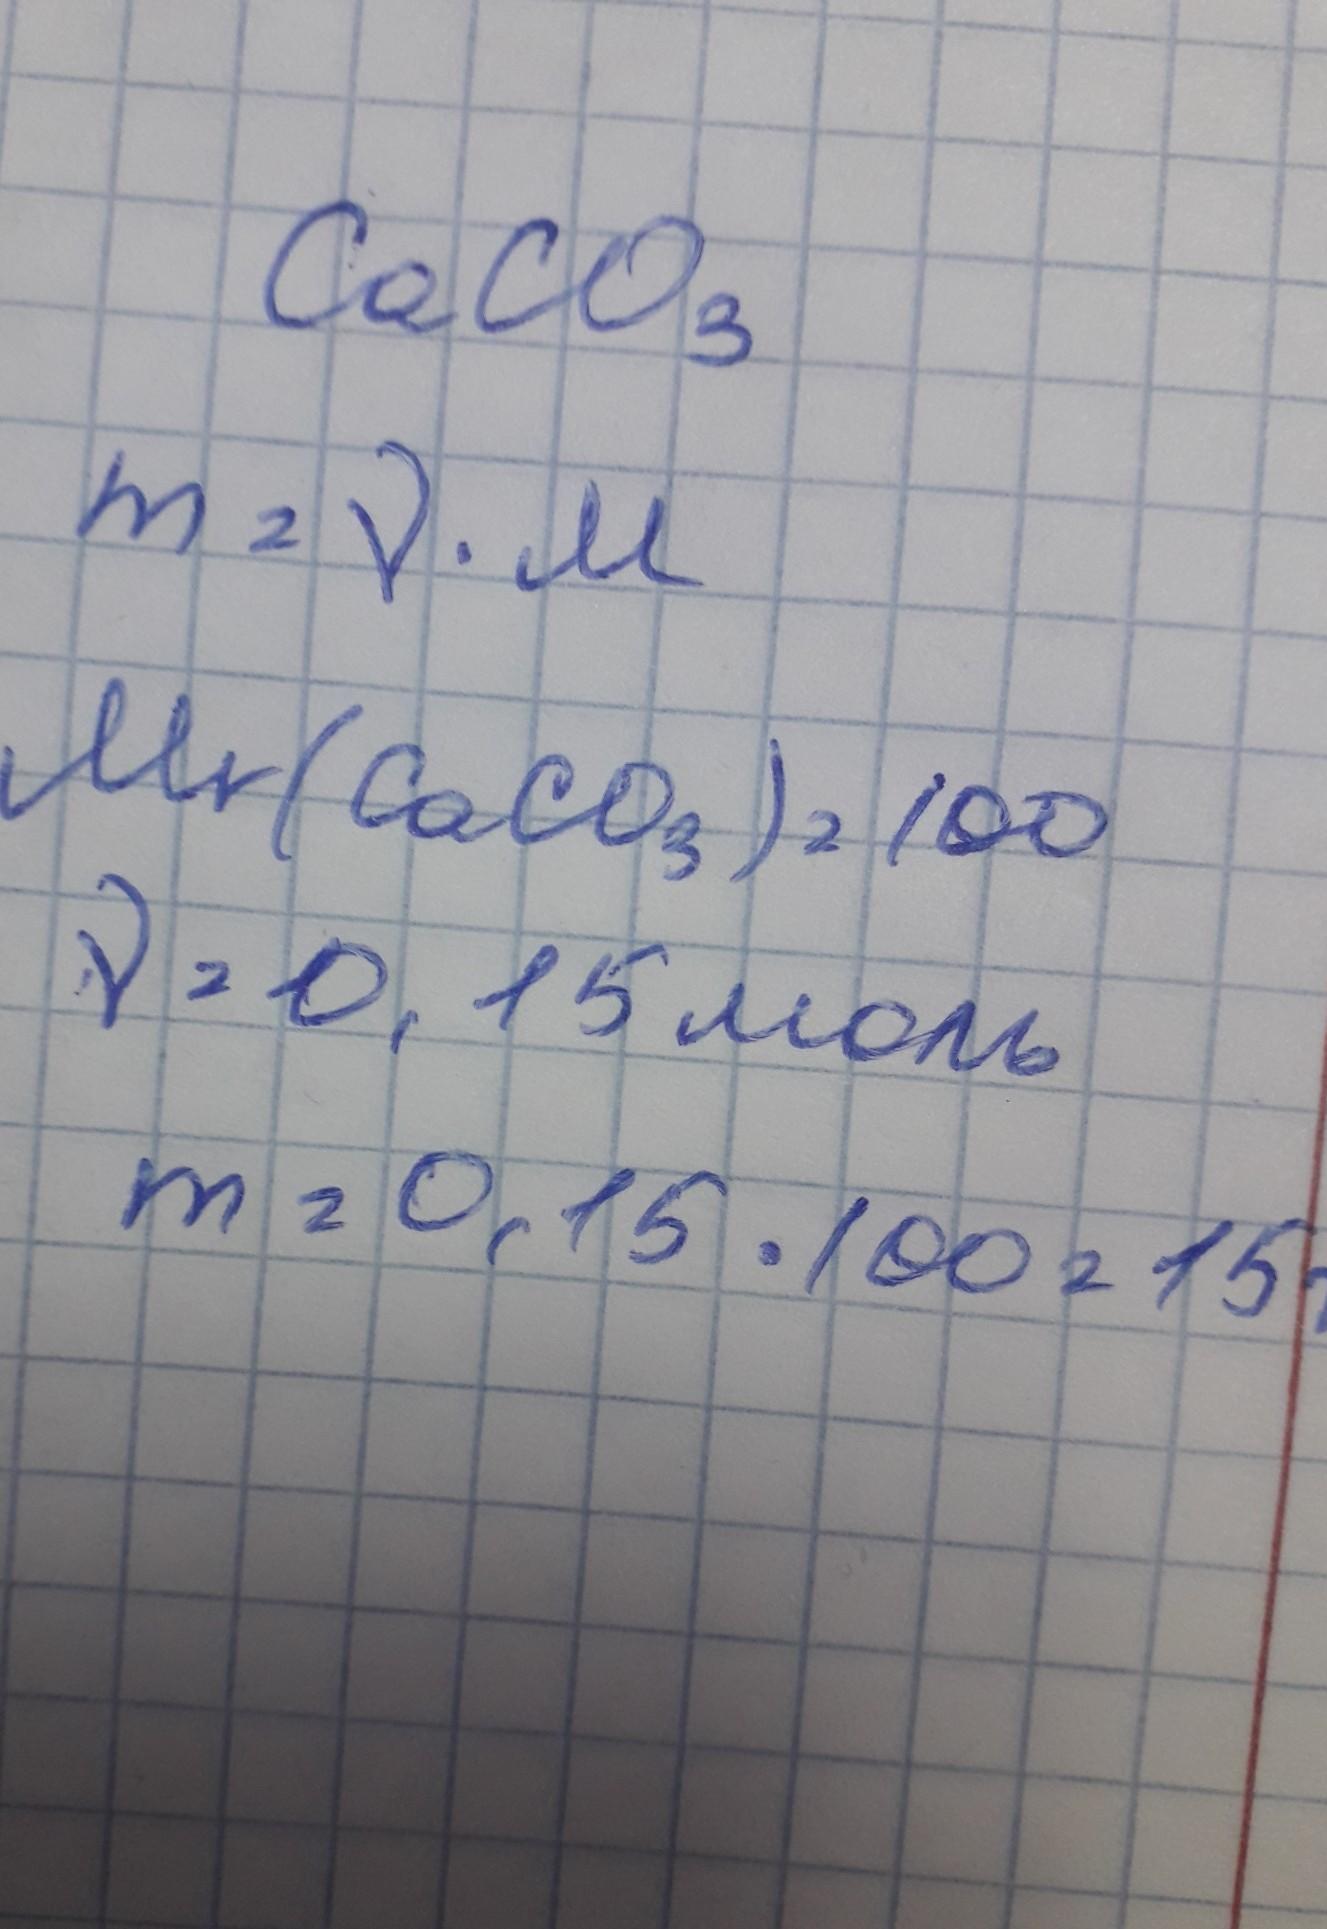 CaCO₃
m = ν · M
Mr(CaCO₃) = 100
ν = 0,15 моль
m = 0,15 · 100 = 15г